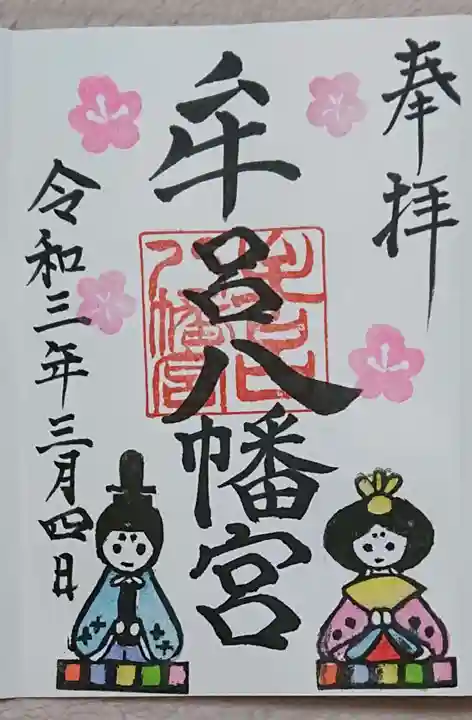 奉拝
牟呂八幡宮
牟呂八幡宮
令和三年三月四日